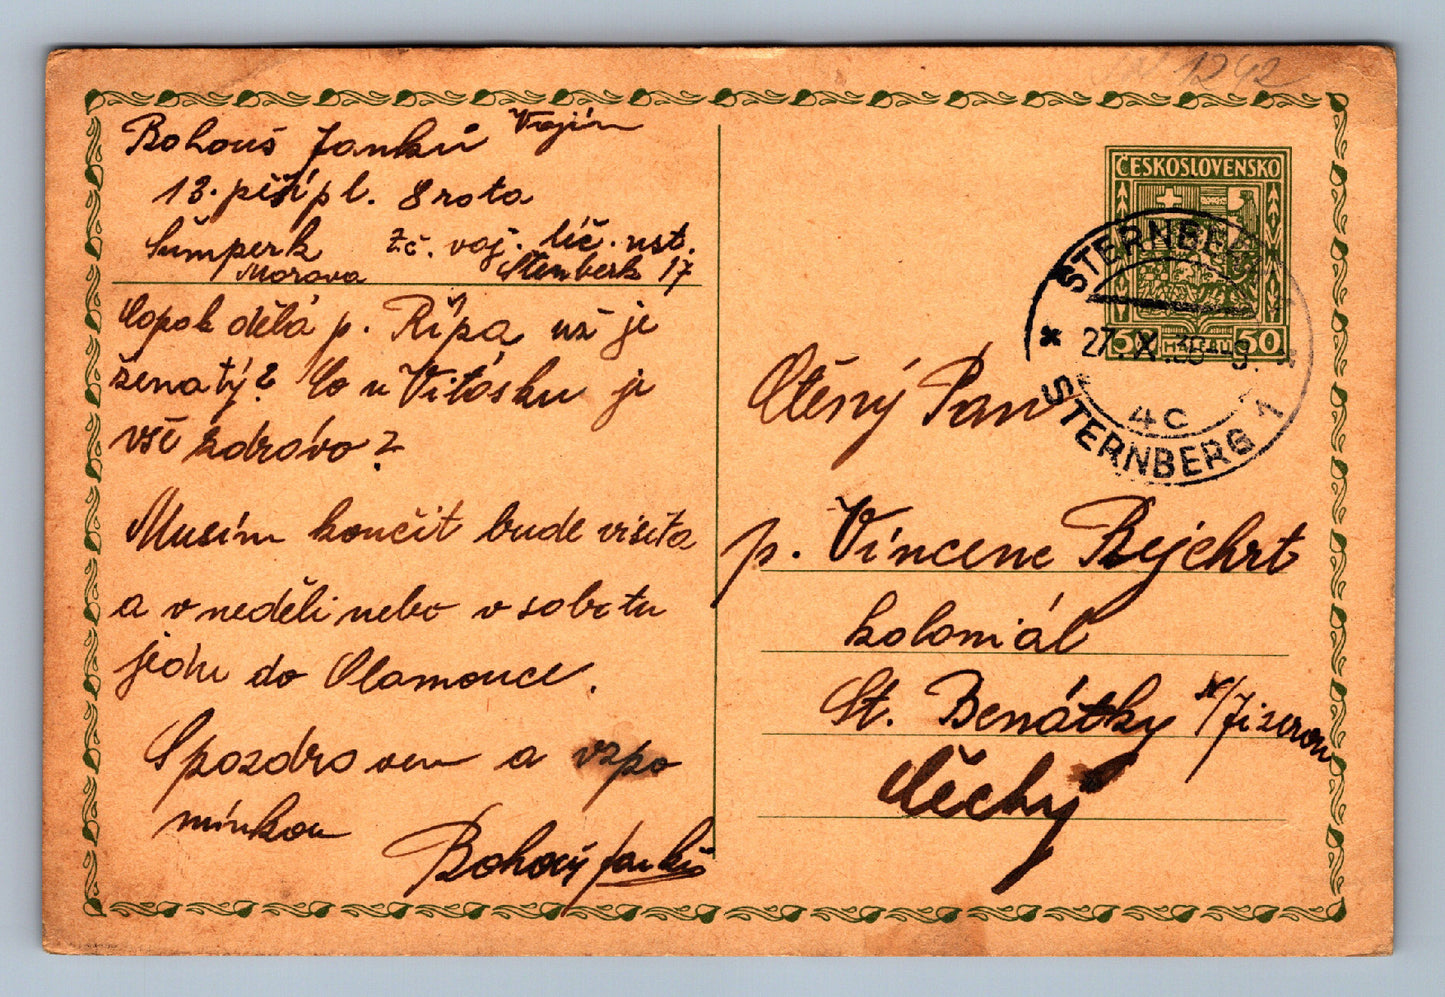 Bohouš Janků Vojín
13. pěší pl. 8 rota
Šumperk
Morava
t.č. voj. léč. ust.
Šternberk 17
Copak dělá p. Řípa už je
ženatý? Co u Vitásku je
vše zdrávo?
Musím končit bude visita
a v neděli nebo v sobotu
jedu do Olamouce.
S pozdravem a vzpo
mínkou
Bohouš Janků
ČESKOSLOVENSKO
50 HALEŘŮ 50
STERNBERK 1
27. X. 36 -9.
4c
STERNBERG 1
Ctěný Pan
p. Víncenc Rejchrt
koloniál
St. Benátky N/Jizerou
Čechy
1242